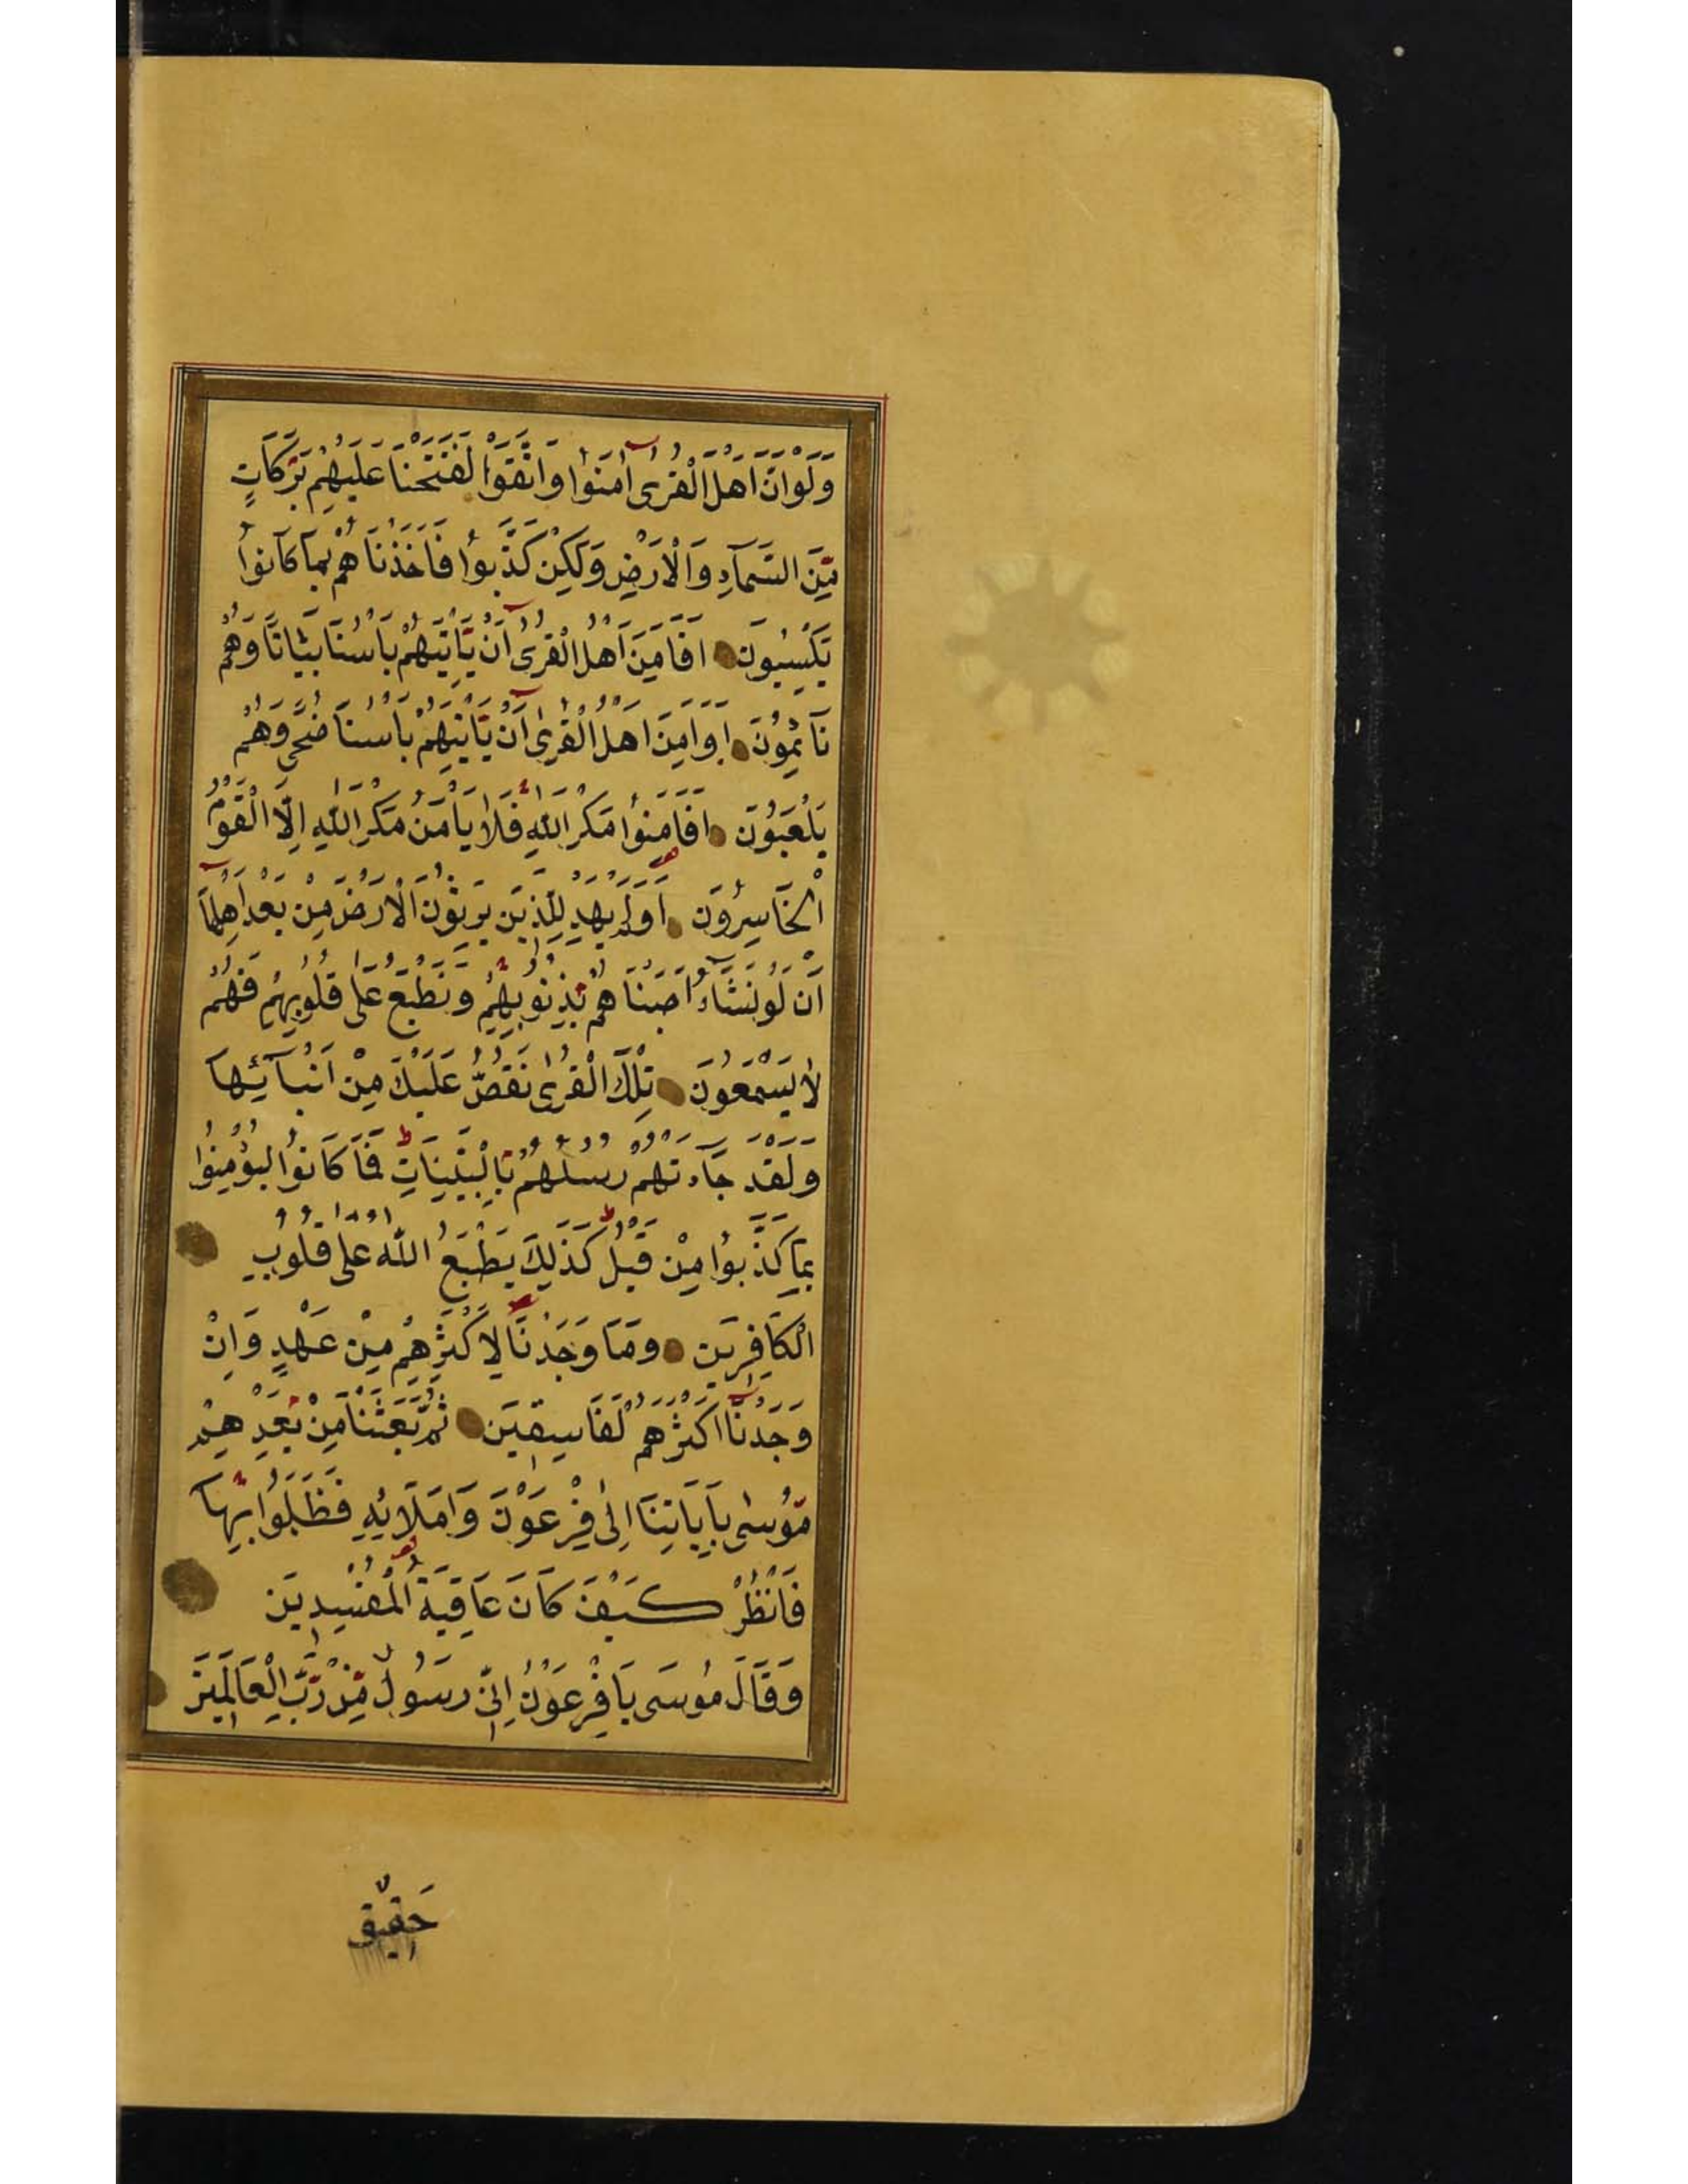 وَلَوْ اَنَّ اَهْلَ الْقُرٰى آمَنُوا وَاتَّقَوْا لَفَتَحْنَا عَلَيْهِمْ بَرَكَاتٍ
مِّنَ السَّمَآءِ وَالْاَرْضِ وَلَكِنْ كَذَّبُوا فَاَخَذْنَاهُمْ بِمَا كَانُوا
يَكْسِبُونَ اَفَاَمِنَ اَهْلُ الْقُرٰى اَنْ يَّأْتِيَهُمْ بَأْسُنَا بَيَاتًا وَهُمْ
نَآئِمُونَ اَوَاَمِنَ اَهْلُ الْقُرٰى اَنْ يَّأْتِيَهُمْ بَأْسُنَا ضُحًى وَهُمْ
يَلْعَبُونَ اَفَاَمِنُوا مَكْرَ اللّٰهِ فَلَا يَأْمَنُ مَكْرَ اللّٰهِ اِلَّا الْقَوْمُ
الْخَاسِرُونَ اَوَلَمْ يَهْدِ لِلَّذِينَ يَرِثُونَ الْاَرْضَ مِنْ بَعْدِ اَهْلِهَآ
اَنْ لَوْ نَشَآءُ اَصَبْنَاهُمْ بِذُنُوبِهِمْ وَنَطْبَعُ عَلٰى قُلُوبِهِمْ فَهُمْ
لَا يَسْمَعُونَ تِلْكَ الْقُرٰى نَقُصُّ عَلَيْكَ مِنْ اَنْبَآئِهَا
وَلَقَدْ جَآءَتْهُمْ رُسُلُهُمْ بِالْبَيِّنَاتِ فَمَا كَانُوا لِيُؤْمِنُوا
بِمَا كَذَّبُوا مِنْ قَبْلُ كَذٰلِكَ يَطْبَعُ اللّٰهُ عَلٰى قُلُوبِ
الْكَافِرِينَ وَمَا وَجَدْنَا لِاَكْثَرِهِمْ مِنْ عَهْدٍ وَاِنْ
وَجَدْنَآ اَكْثَرَهُمْ لَفَاسِقِينَ ثُمَّ بَعَثْنَا مِنْ بَعْدِهِمْ
مُوسٰى بِآيَاتِنَا اِلٰى فِرْعَوْنَ وَامَلَائِهِ فَظَلَمُوا بِهَا
فَانْظُرْ كَيْفَ كَانَ عَاقِبَةُ الْمُفْسِدِينَ
وَقَالَ مُوسَى يَا فِرْعَوْنُ اِنِّي رَسُولٌ مِّنْ رَّبِّ الْعَالَمِينَ
حَقِيقٌ